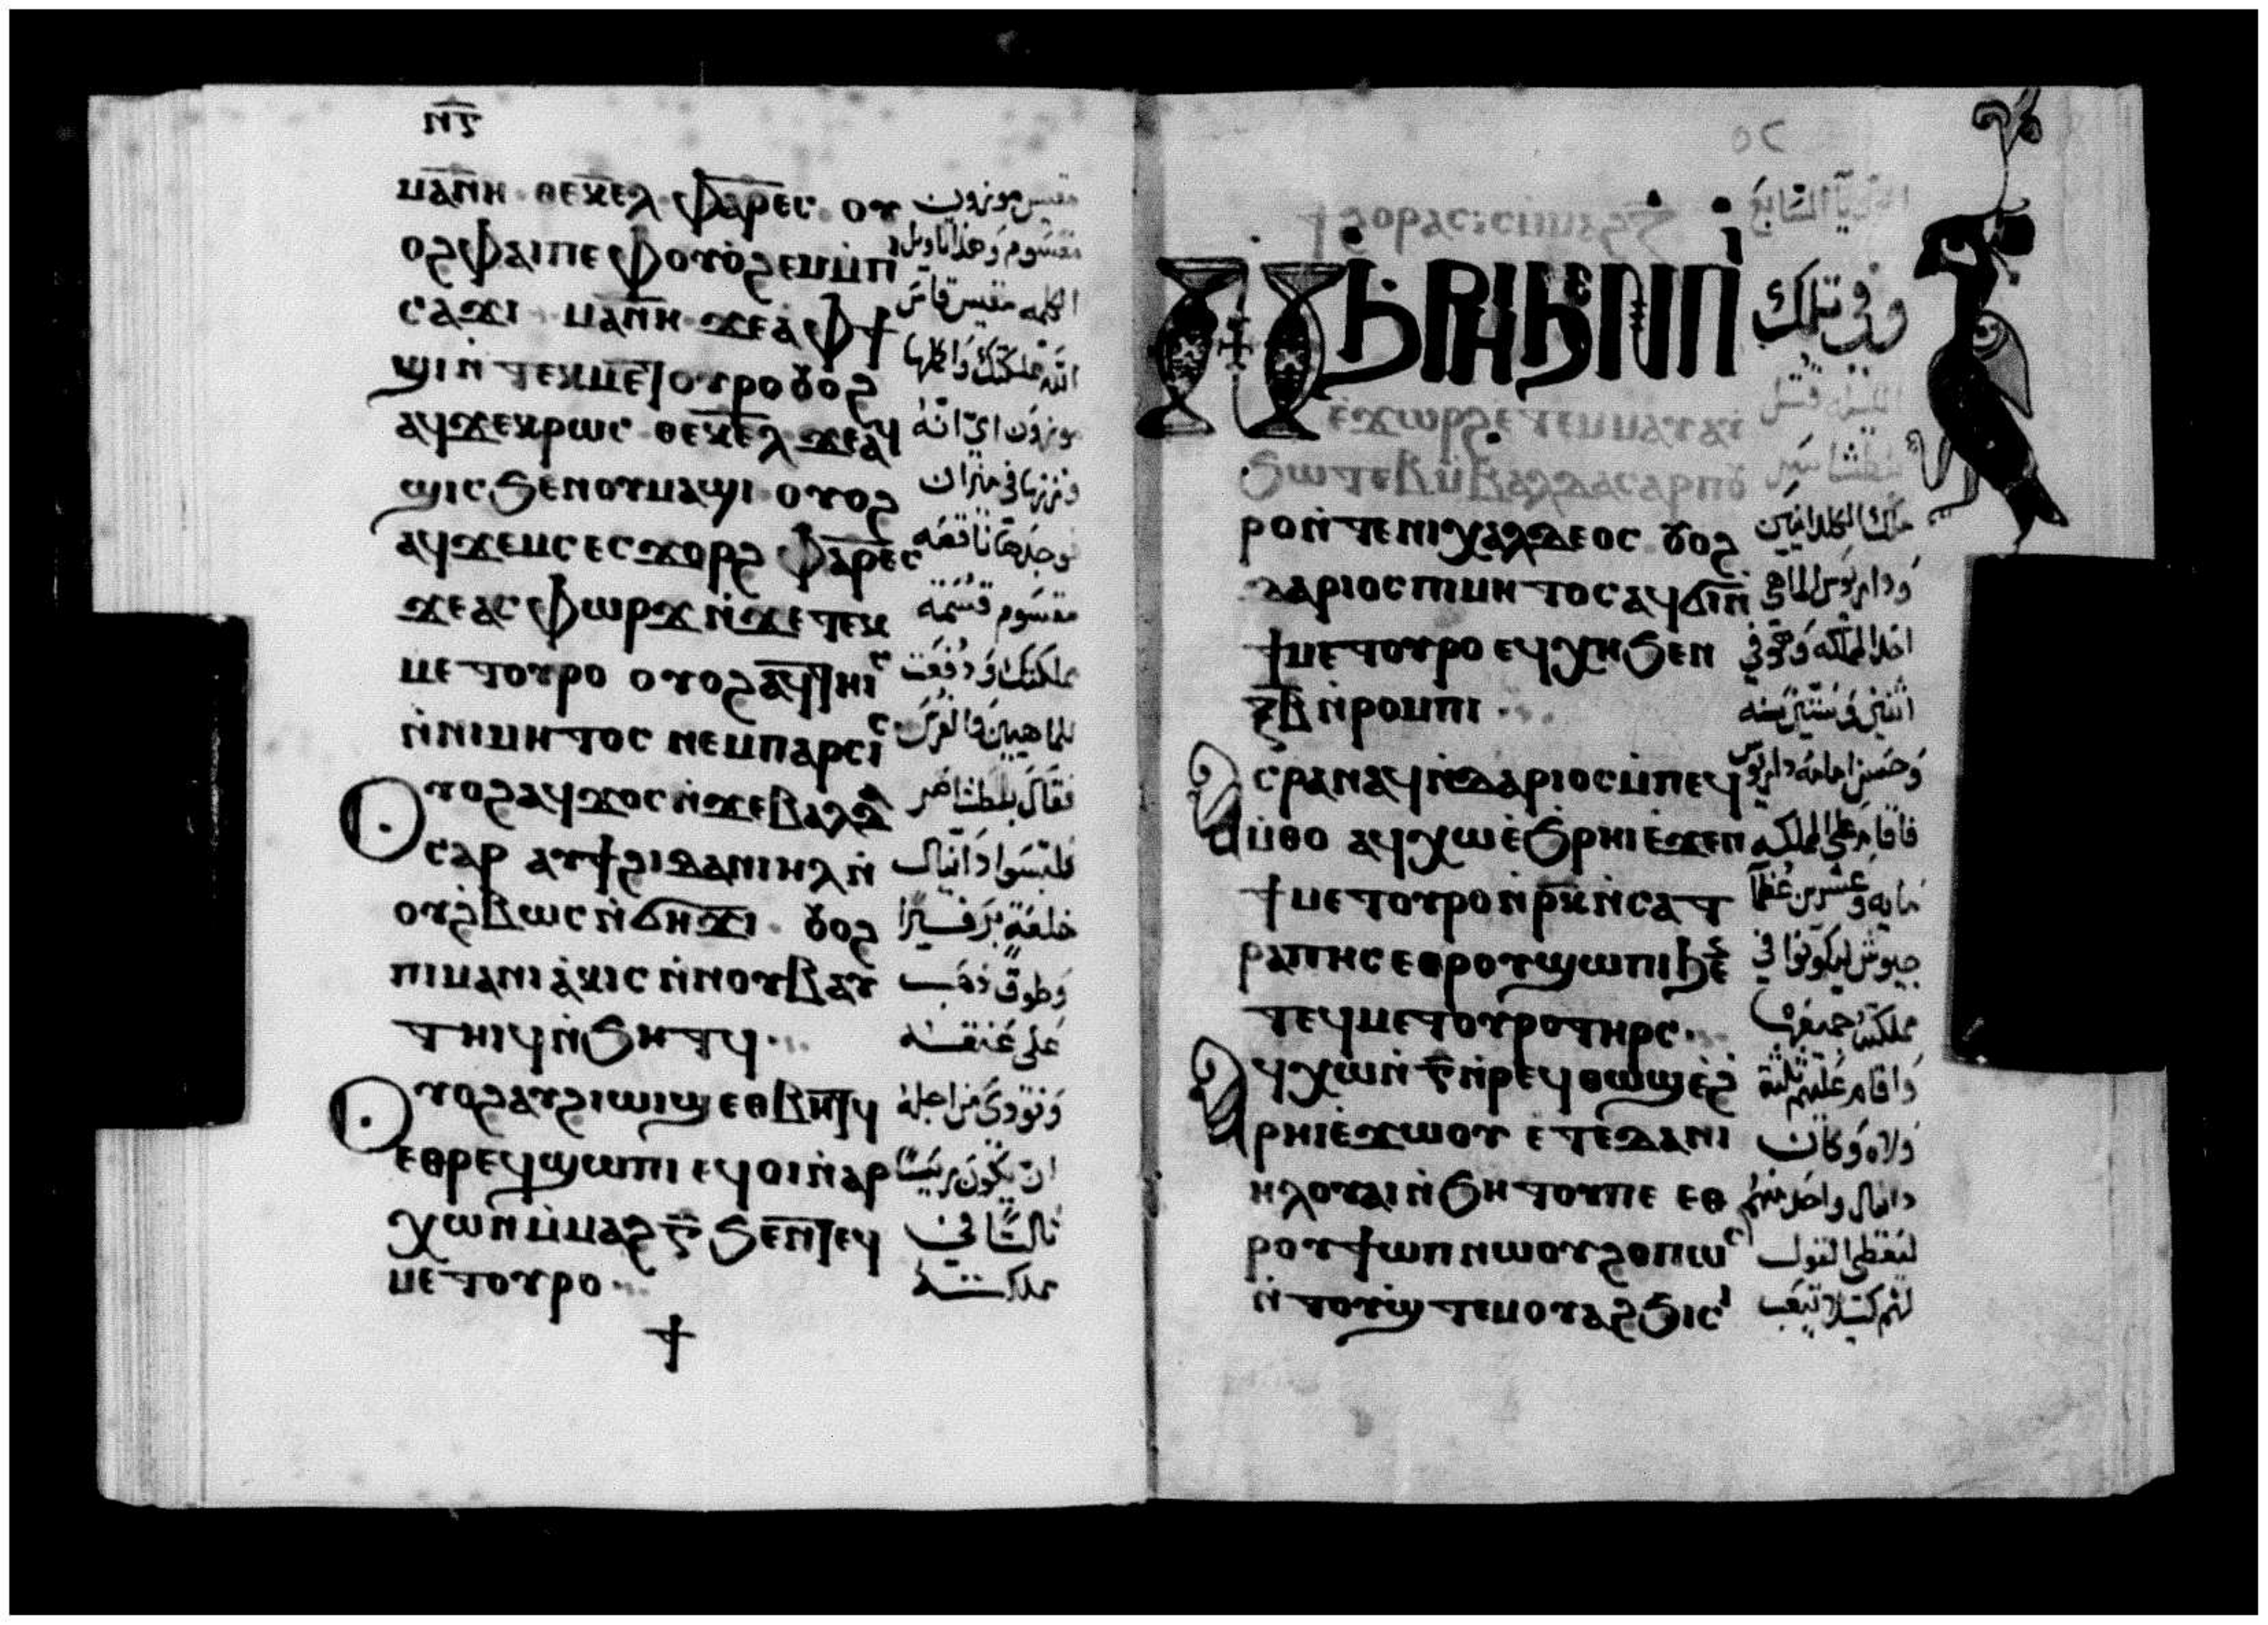 ⲛⲋ
ⲙⲁⲛⲏ · ⲑⲉⲕⲉⲗ · ⲫⲁⲣⲉⲥ · ⲟⲩ
ⲟϩ ⲫⲁⲓ ⲡⲉ ⲫⲟⲩⲱϩⲉⲙ ⲙⲡ
ⲥⲁϫⲓ ⲙⲁⲛⲏ ϫⲉ ⲁ ⲫϯ
ϣⲓ ⲛⲧⲉⲕⲙⲉⲧⲟⲩⲣⲟ ⲟⲩⲟϩ
ⲁϥϫⲉⲕⲣⲱⲥ ⲑⲉⲕⲉⲗ ϫⲉ ⲁϥ
ϣⲓⲥ ϧⲉⲛ ⲟⲩⲙⲁϣⲓ ⲟⲩⲟϩ
ⲁϥϫⲉⲙⲥ ⲉⲥϫⲟⲣϩ ⲫⲁⲣⲉⲥ
ϫⲉ ⲁⲥⲫⲱⲣϫ ⲛϫⲉ ⲧⲉⲕ
ⲙⲉⲧⲟⲩⲣⲟ ⲟⲩⲟϩ ⲁⲩⲧⲏⲓⲥ
ⲛⲛⲓⲙⲏⲧⲟⲥ ⲛⲉⲙ ⲡⲁⲣⲥⲓⲥ
ⲟⲩⲟϩ ⲁϥϫⲟⲥ ⲛϫⲉ ⲃⲁⲗⲇⲁ
ⲥⲁⲣ ⲁⲩϯϩⲓ ⲇⲁⲛⲓⲏⲗ ⲛ
ⲟⲩϩⲃⲱⲥ ⲛϭⲏϫⲓ · ⲟⲩⲟϩ
ⲡⲓⲙⲁⲛⲓⲁⲕⲓⲥ ⲛⲛⲟⲩⲃ ⲁⲩ
ⲧⲏⲓϥ ⲛϧⲏⲧϥ
ⲟⲩⲟϩ ⲁⲩϩⲓⲱⲓϣ ⲉⲑⲃⲏⲧϥ
ⲉⲑⲣⲉϥϣⲱⲡⲓ ⲉϥⲟⲓ ⲛⲁⲣ
ⲭⲱⲛ ⲙⲙⲁϩ ⲅ ϧⲉⲛ ⲧⲉϥ
ⲙⲉⲧⲟⲩⲣⲟ
مقيس موزون
مقسوم وهذا تاويل
الكلمه مقيس قاس
الله مملكتك واكملها
موزون اي انه
وزنها في ميزان
فوجدها ناقصه
مقسوم قسمة
مملكتك ودفعت
للماهيين والفرس
فقال بلطشاصر
فلبسوا دانيال
خلعة
وطوق ذهب
على عنقه
ونودي من اجله
ان يكون رئيسا
ثالثا في
مملكته
ϯϩⲟⲣⲁⲥⲓⲥ
ⲛϧⲣⲏⲓ ϧⲉⲛ ⲡⲓ
ⲉϫⲱⲣϩ ⲉⲧⲉⲙⲙⲁⲩ ⲁⲩ
ϧⲱⲧⲉⲃ ⲙⲃⲁⲗⲇⲁⲥⲁⲣ ⲡⲟⲩ
ⲣⲟ ⲛⲧⲉ ⲛⲓⲭⲁⲗⲇⲉⲟⲥ ⲟⲩⲟϩ
ⲇⲁⲣⲓⲟⲥ ⲡⲓⲙⲏⲧⲟⲥ ⲁϥϭⲓ ⲛ
ϯⲙⲉⲧⲟⲩⲣⲟ ⲉϥⲭⲏ ϧⲉⲛ
ⲝⲃ ⲛⲣⲟⲙⲡⲓ
ⲁⲥⲣⲁⲛⲁϥ ⲛⲇⲁⲣⲓⲟⲥ ⲙⲡⲉϥ
ⲙⲑⲟ ⲁϥⲭⲱ ⲉϧⲣⲏⲓ ⲉϫⲉⲛ
ϯⲙⲉⲧⲟⲩⲣⲟ ⲛⲣⲕ ⲛⲥⲁⲧ
ⲣⲁⲡⲏⲥ ⲉⲑⲣⲟⲩϣⲱⲡⲓ ϧⲉⲛ
ⲧⲉϥⲙⲉⲧⲟⲩⲣⲟ ⲧⲏⲣⲥ
ⲁϥⲭⲱ ⲛ ⲅ ⲛⲣⲉϥⲑⲱϣ ⲉϩ
ⲣⲏⲓ ⲉϫⲱⲟⲩ ⲉⲧⲉ ⲇⲁⲛⲓ
ⲏⲗ ⲟⲩⲁⲓ ⲛϧⲏⲧⲟⲩ ⲡⲉ ⲉⲑ
ⲣⲟⲩϯⲱⲡ ⲛⲱⲟⲩ ϩⲟⲡⲱⲥ
ⲛⲧⲟⲩϣⲧⲉⲙⲟⲩⲁϩϧⲓⲥⲓ
الرويا السابع
وفي تلك
الليله قتل
بلطشاصر
ملك الكلدانيين
وداريوس الماهي
اخذ المملكه وهو في
اثنين وستين سنه
وحسن امامه داريوس
فاقام على المملكه
مايه وعشرين
جيوش ليكونوا في
مملكته جميعها
واقام عليهم ثلثة
ولاه وكان
دانيال واحد منهم
ليعطى القول
لهم كيلا تتعب